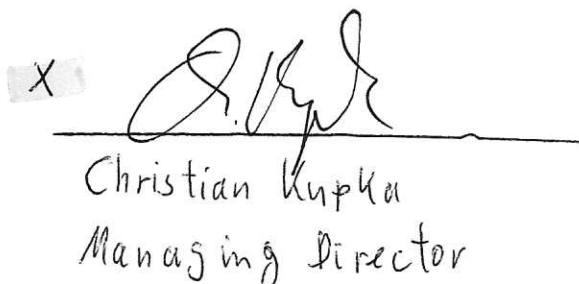 X
Ch. Kupka
Christian Kupka
Managing Director